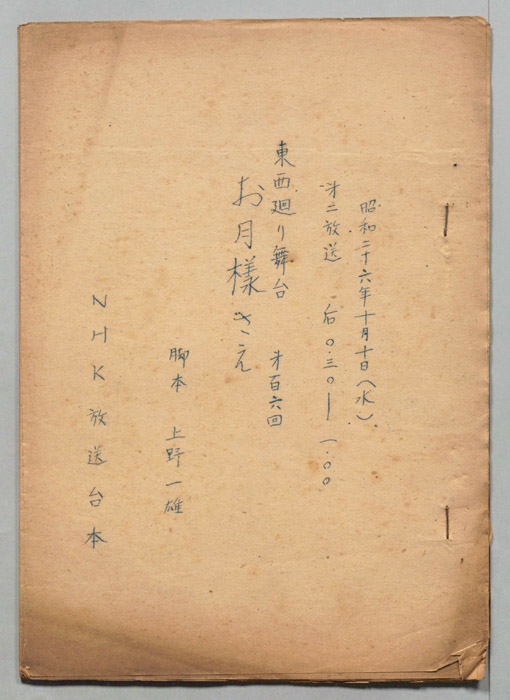 昭和二十六年十月十日（水）
才二放送 后〇.三〇―一.〇〇
東西廻り舞台 才百六回
お月様さえ
脚本 上野一雄
NHK放送台本